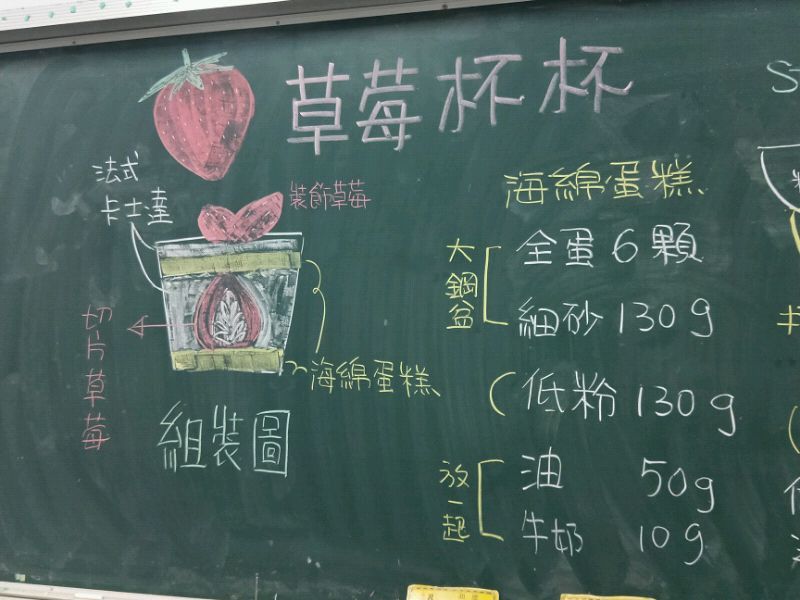 草莓杯杯
法式
卡士達
裝飾草莓
切片草莓
海綿蛋糕
組裝圖
海綿蛋糕
大鋼盆
全蛋 6顆
細砂 130g
低粉 130g
放一起
油 50g
牛奶 10g